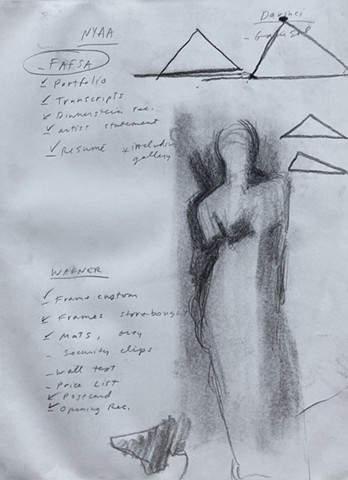 NYAA
- FAFSA
✓ Portfolio
✓ Transcripts
✓ Dinnerstein rec.
✓ artist statement
✓ Resume * includin
gallery
WAGNER
✓ Frame custom
✓ Frames store-bough
✓ Mats,
- Security clips
- Wall text
- Price List
✓ Postcard
✓ Opening Rec.